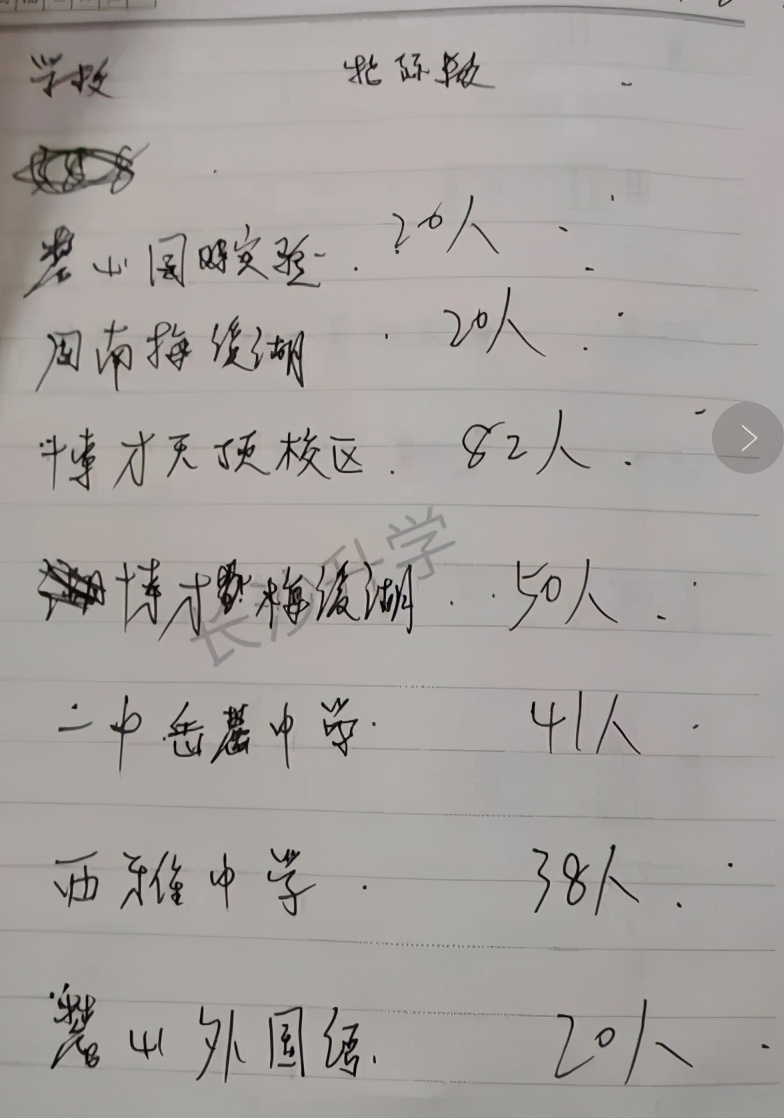 学校 指标数
麓山国际实验 20人
周南梅溪湖 20人
博才天顶校区 82人
博才梅溪湖 50人
一中岳麓中学 41人
西雅中学 38人
麓山外国语 20人
长沙升学